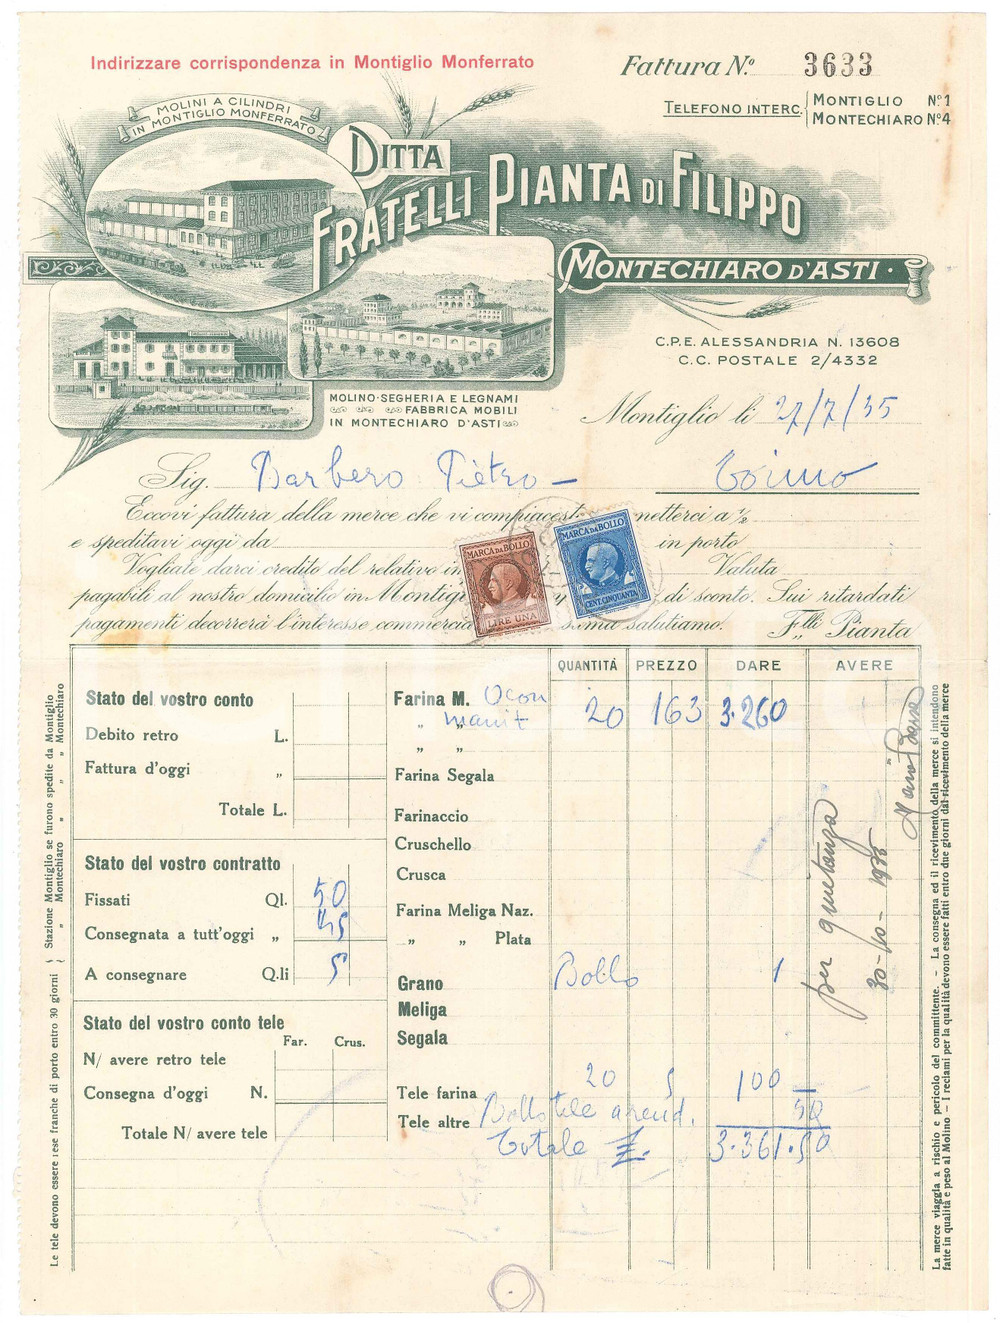 Indirizzare corrispondenza in Montiglio Monferrato
Fattura N.º 3633
TELEFONO INTERC. MONTIGLIO Nº 1
MONTECHIARO Nº 4
MOLINI A CILINDRI
IN MONTIGLIO MONFERRATO
DITTA
FRATELLI PIANTA DI FILIPPO
MONTECHIARO D'ASTI
C.P.E. ALESSANDRIA N. 13608
C.C. POSTALE 2/4332
MOLINO-SEGHERIA E LEGNAMI
FABBRICA MOBILI
IN MONTECHIARO D'ASTI
Montiglio li 27/7/35
Sig. Barbero Piètro - Torino
Eccovi fattura della merce che vi compiacesti netterci a 1/2
e speditavi oggi da in porto
Vogliate darci credito del relativo in Valuta
pagabili al nostro domicilio in Montig di sconto. Sui ritardati
pagamenti decorrerà l'interesse commercia stima salutiamo. F.lli Pianta
MARCA DA BOLLO
LIRE UNA
MARCA DA BOLLO
CENT. CINQUANTA
QUANTITÀ PREZZO DARE AVERE
Stato del vostro conto
Debito retro L.
Fattura d'oggi "
Totale L.
Stato del vostro contratto
Fissati Ql. 50
Consegnata a tutt'oggi " 45
A consegnare Q.li 5
Stato del vostro conto tele
Far. Crus.
N/ avere retro tele
Consegna d'oggi N.
Totale N/ avere tele
Farina M. 20 163 3.260
" "
" "
Farina Segala
Farinaccio
Cruschello
Crusca
Farina Meliga Naz.
" " Plata
Grano Bollo 1
Meliga
Segala
Tele farina 20 5 100 —
Tele altre Bollo tele 50
Totale £. 3.361.50
per quietanza
30-10-1935
Stazione Montiglio se furono spedite da Montiglio
" Montechiaro " " " " Montechiaro
Le tele devono essere rese franche di porto entro 30 giorni
La merce viaggia a rischio e pericolo del committente. - La consegna ed il ricevimento della merce si intendono
fatte in qualità e peso al Molino - I reclami per la qualità devono essere fatti entro due giorni dal ricevimento della merce